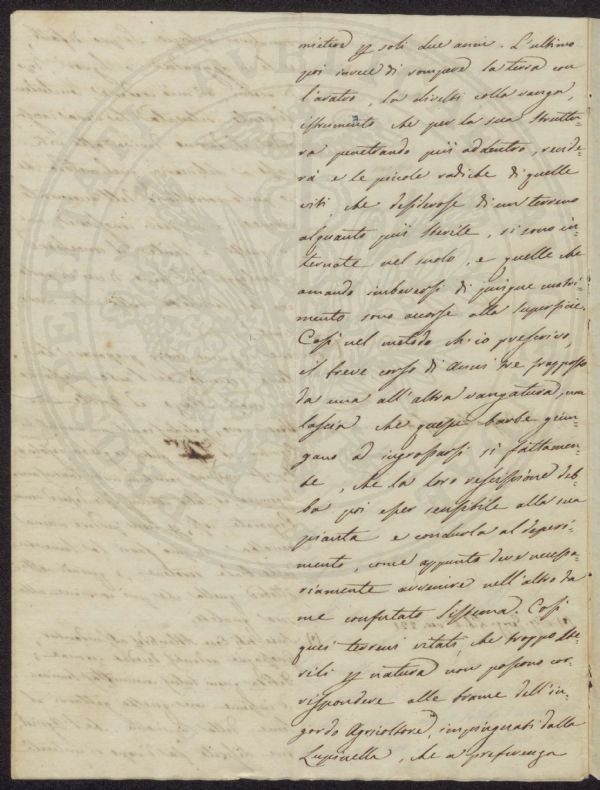 mietere per soli due anni. L'ultimo
poi invece di rompere la terra con
l'aratro, la divelsi colla vanga,
istrumento che per la sua struttu-
ra penetrando più addentro, recide-
rà e le piccole radiche di quelle
viti, che desiderose di un terreno
alquanto più sterile, si sono in-
ternate nel suolo, e quelle che
amando imbeversi di pingue nutri-
mento sono accorse alla superficie.
Così nel metodo ch'io prescrivo,
il breve corso di anni tre frapposto
da una all'altra vangatura, non
lascia che queste barbe giun-
gano ad ingrossarsi sì fattamen-
te, che la loro rescissione deb-
ba poi esser sensibile alla sua
pianta e condurla al deperi-
mento, come appunto deve necessa-
riamente avvenire nell'altro da
me confutato sistema. Così
quei terreni vitati, che troppo ste-
rili per natura non possono cor-
rispondere alle brame dell'in-
gordo Agricoltore, impinguati dalla
Lupinella, che a preferenza